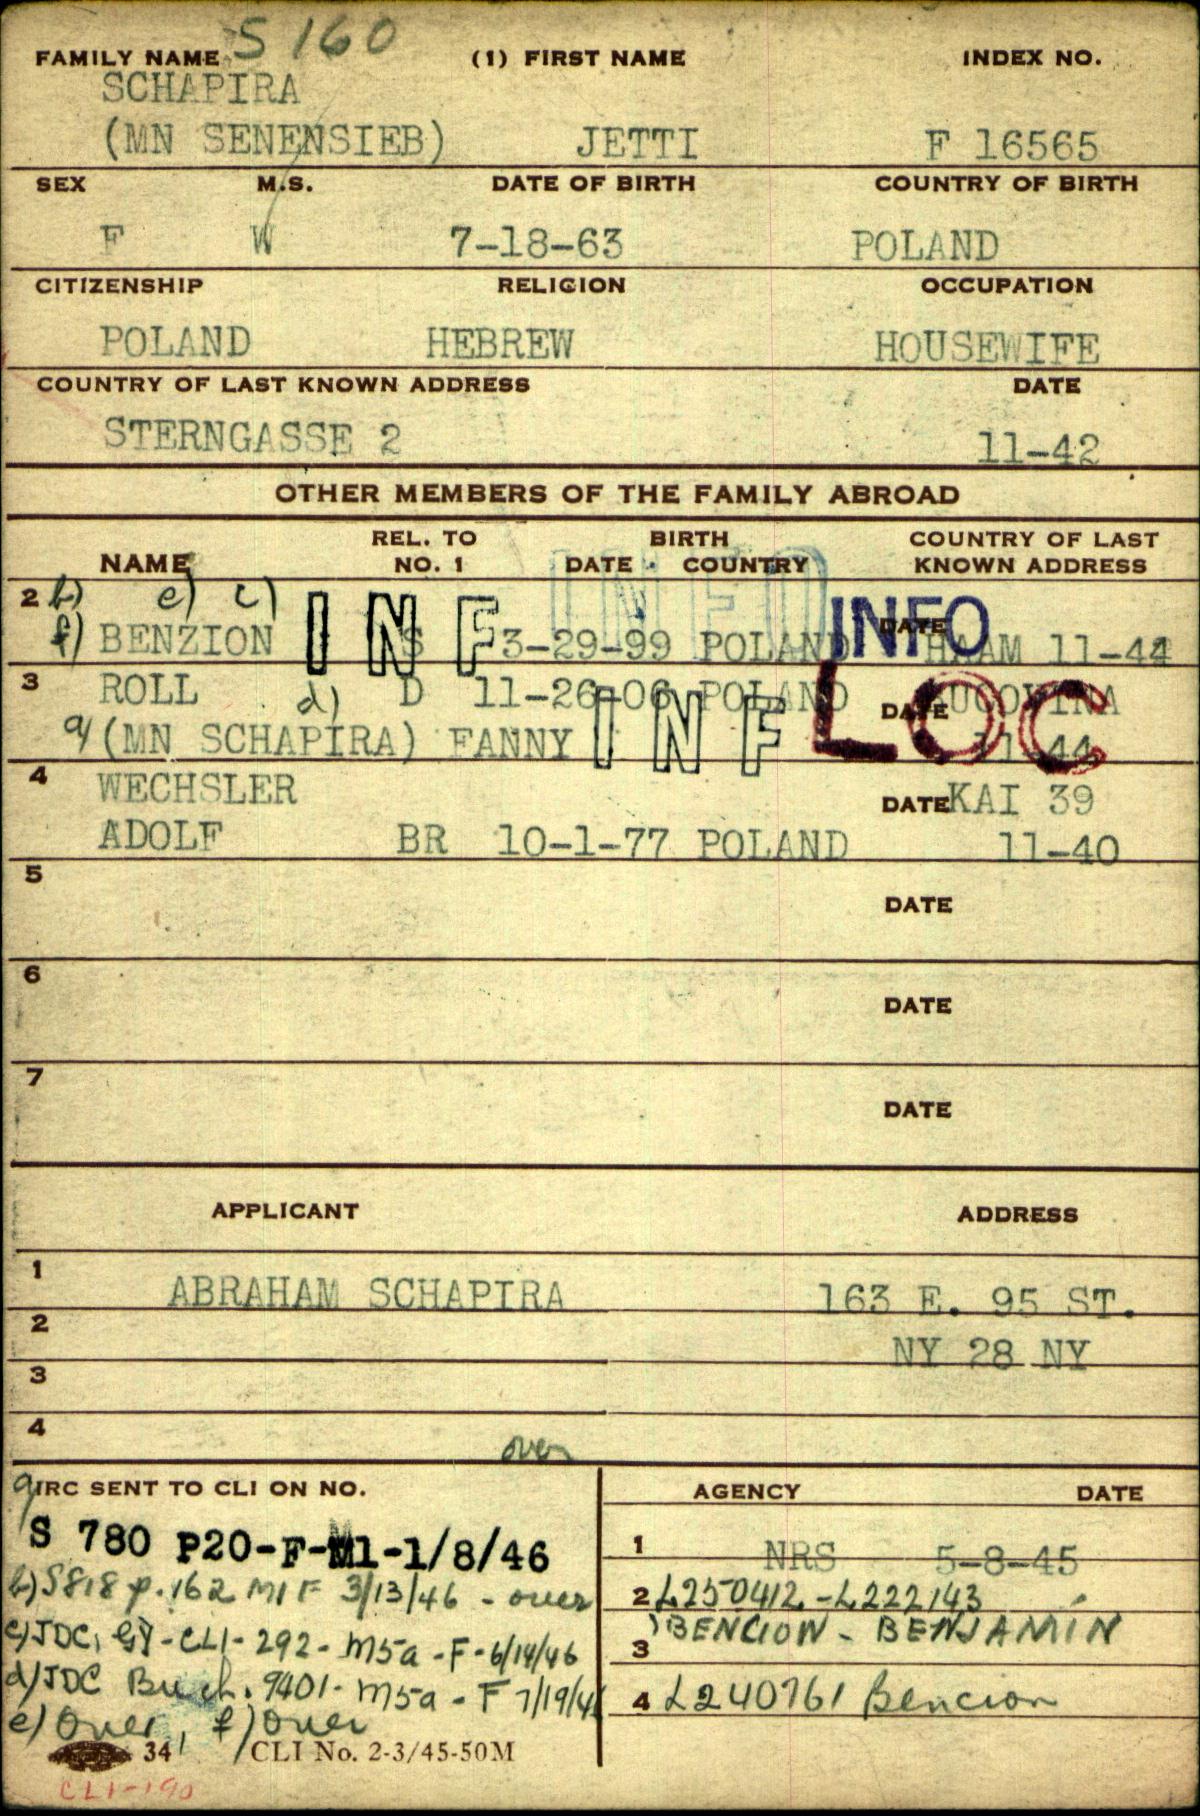 S 160
FAMILY NAME (1) FIRST NAME INDEX NO.
SCHAPIRA
(MN SENENSIEB) JETTI F 16565
SEX M.S. DATE OF BIRTH COUNTRY OF BIRTH
F W 7-18-63 POLAND
CITIZENSHIP RELIGION OCCUPATION
POLAND HEBREW HOUSEWIFE
COUNTRY OF LAST KNOWN ADDRESS DATE
STERNGASSE 2 11-42
OTHER MEMBERS OF THE FAMILY ABROAD
NAME REL. TO NO. 1 BIRTH DATE COUNTRY COUNTRY OF LAST KNOWN ADDRESS
INFO
2 b) e) c) INF INFO DATE
f) BENZION S 3-29-99 POLAND 11-44
3 ROLL d) D 11-26-06 POLAND DATE
LOC
a) (MN SCHAPIRA) FANNY INF 11-44
4 WECHSLER DATE KAI 39
ADOLF BR 10-1-77 POLAND 11-40
5 DATE
6 DATE
7 DATE
APPLICANT ADDRESS
1 ABRAHAM SCHAPIRA 163 E. 95 ST.
2 NY 28 NY
3
4
over
a) IRC SENT TO CLI ON NO. AGENCY DATE
S 780 P20-F-M1-1/8/46
1 NRS 5-8-45
b) S818 p.162 M1 F 3/13/46 - over
2 L250412-L222143
c) JDC, -CLI-292-M5a-F-6/14/46
3 BENCION - BENJAMIN
d) JDC Buch. 9401-M5a-F 7/19/46
4 L240761 Bencion
e) Over, f) Over
34 CLI No. 2-3/45-50M
CLI-190